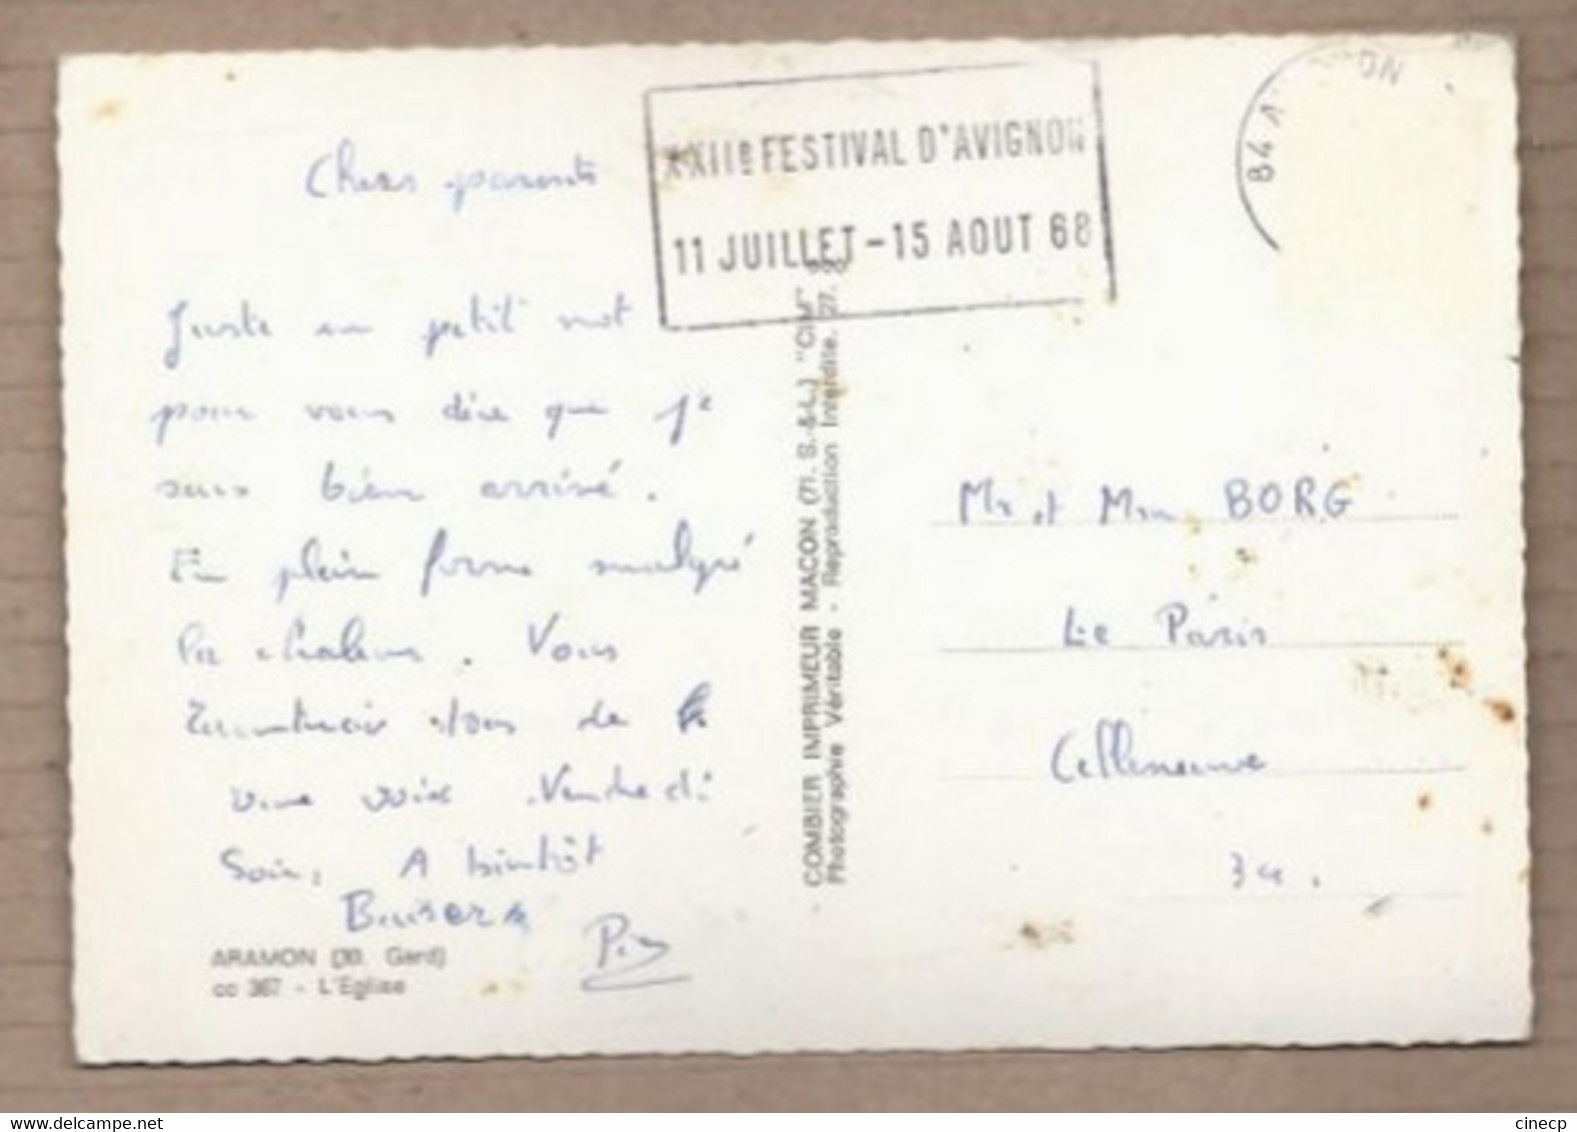 XXIIe FESTIVAL D'AVIGNON
11 JUILLET - 15 AOUT 68
84 A
Chers parents
Juste un petit mot
pour vous dire que je
suis bien arrivé.
En plein forme malgré
la chaleur. Vous
de
vive voix Vendredi
Soir, A bientôt
ARAMON (30. Gard)
cc 367 - L'Eglise
COMBIER IMPRIMEUR MACON (71. S.-&-L.) "CIM"
Photographie Véritable - Reproduction Interdite.
Mr et Mme BORG
Le Paris
Celleneuve
34.
www.delcampe.net
cinecp